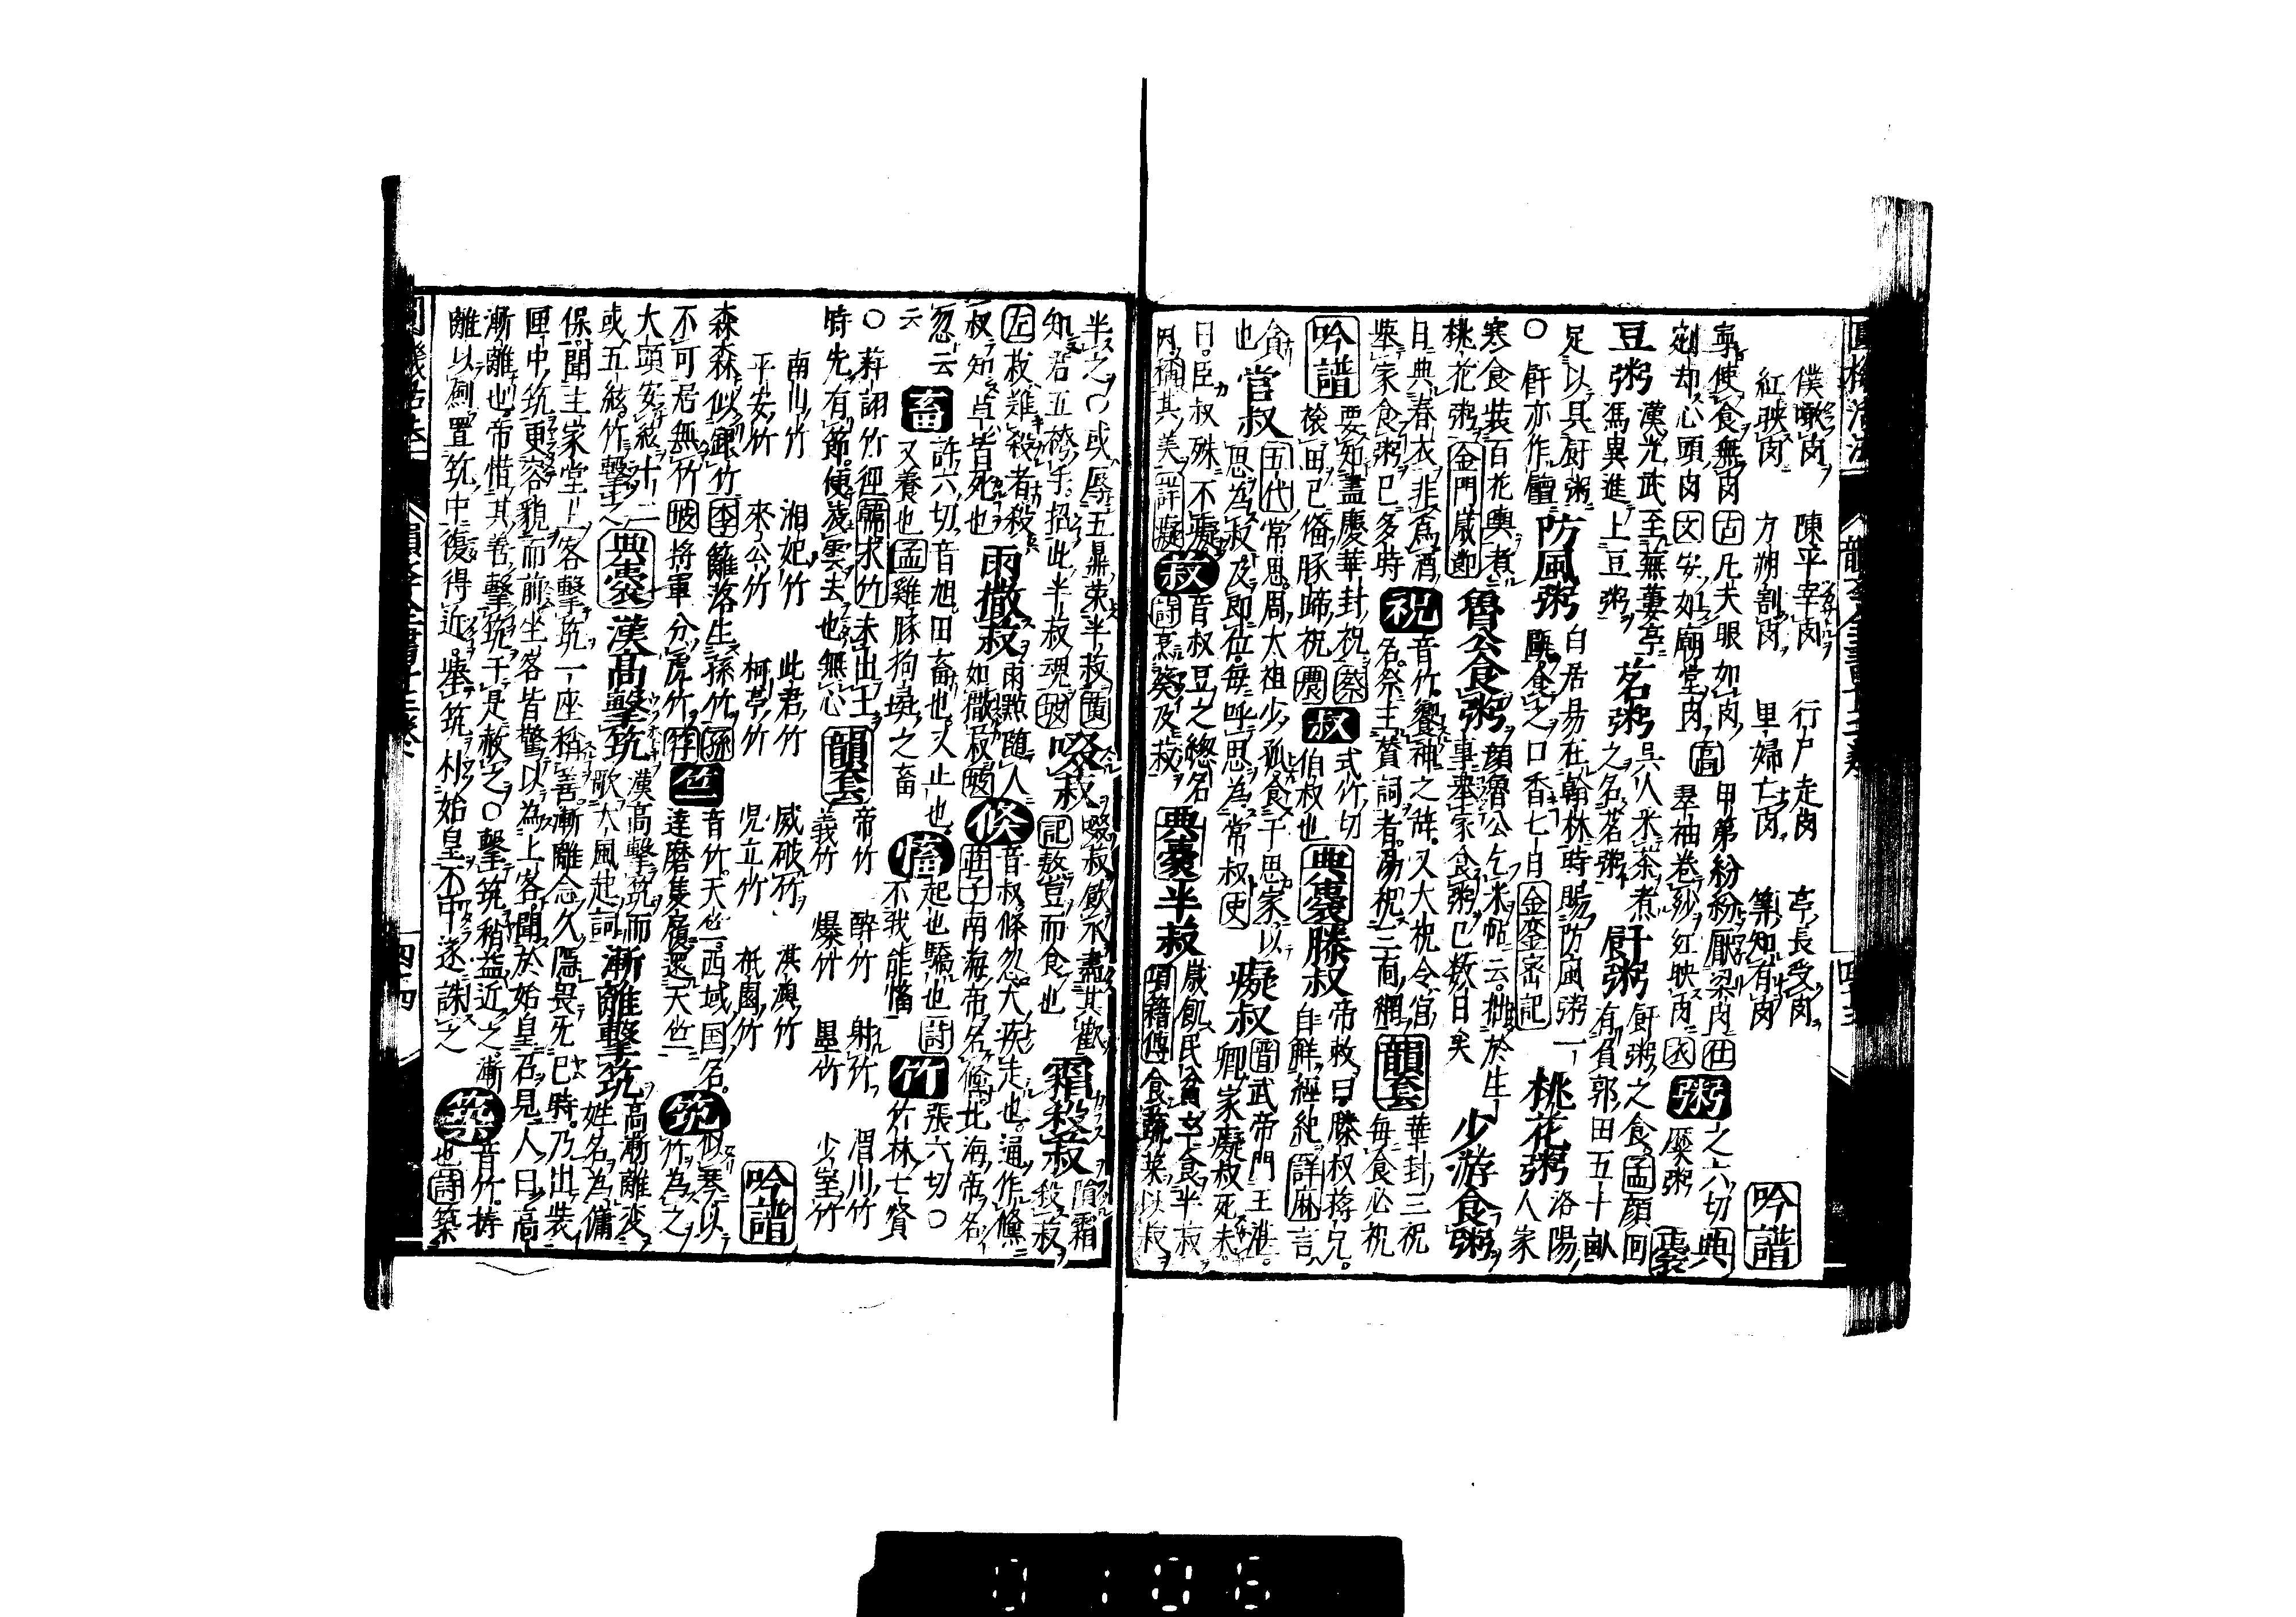 僕噉肉 陳平宰肉 行尸走肉 亭長受肉
紅映肉 方朔割肉 里婦亡肉 筭知有肉 吟譜
寧使食無肉 古 凡夫眼如肉 高 甲第紛紛厭梁肉 杜
剜却心頭肉 文 安如廟堂肉 翠袖卷紗紅映肉 粥 之六切 糜粥 典囊
豆粥 漢光武至蕪蔞亭 馮異進上豆粥 茗粥 吳人采茶煮之名茗粥 飦粥 飦粥之食 孟 顏回有負郭田五十畝
足以具飦粥 防風粥 白居易在翰林時賜防風粥一甌食之口香七日 金鑾密記 桃花粥 洛陽人家
寒食裝百花輿煮桃花粥 金門歲節 魯公食粥 顏魯公乞米帖云拙於生事舉家食粥已數日矣 少游食粥
日典春衣非爲酒 舉家食粥已多時 祝 音竹饗神之辞又大祝令官名祭主賛詞者 韻套 華封三祝 每食必祝
吟譜 要知盡慶華封祝 蔡 𥴊田已偹豚蹄祝 農 叔 式竹切 伯叔也 典囊 滕叔 帝敕曰滕叔將兄自鮮經紀 詳麻言
食也 嘗叔 五代 常思周太祖少孤食于思家以思為叔及即位每呼思為常叔 史 癡叔 晋武帝門王湛卿家癡叔死未
曰臣叔殊不癡因稱其美 詳癡 菽 音叔豆之總名 詩 烹葵及菽 典囊 半菽 歲飢民貧士食半菽 項籍傳 食蔬菜以菽
半之〇或辱五鼎榮半菽 廣 啜菽 啜菽飲水盡其歡 記 敖豈而食也 霜殺菽 隕霜殺菽
知君五袴手招此半菽魂 坡
左 菽難殺者殺菽知草皆死也 雨撒菽 雨點随人如撒菽 坡 倐 音叔倐忽犬疾走也通作儵 莊子 南海帝名儵北海帝名
忽云云 畜 許六切音旭田畜也又止也又養也 孟 雞豚狗彘之畜 慉 起也驕也 詩 不我能慉 竹 張六切〇竹林七賢
〇蒋詡竹徑 韓 求竹未出土時先有節便凌雲去也無心 韻套 帝竹 醉竹 射竹 渭川竹 義竹 爆竹 墨竹 少室竹
南山竹 湘妃竹 此君竹 威破竹 淇澳竹
平安竹 來公竹 柯亭竹 児立竹 祇園竹 吟譜
森森似御竹 李 籬落生孫竹 孫
不可居無竹 坡 將軍分虎竹 李 竺 音竹天竺西域国名 達磨隻履還天竺 筑 似琴以竹為之
大頭安絃十二 或五絃竹擊之 典囊 漢高擊筑 漢高擊筑而歌大風起詞 漸離擊筑 高漸離変姓名為傭
保聞主家堂上客擊筑一座稱善漸離念久隱畏死已時乃出裝
匣中筑更容貌而前坐客皆驚以為上客聞於始皇召見人曰高
漸離也帝惜其善擊筑于是赦之〇擊筑稍益近之漸
離以鉛置筑中復得近舉筑朴始皇不中遂誅之 築 音竹擣也 詩 築
0106